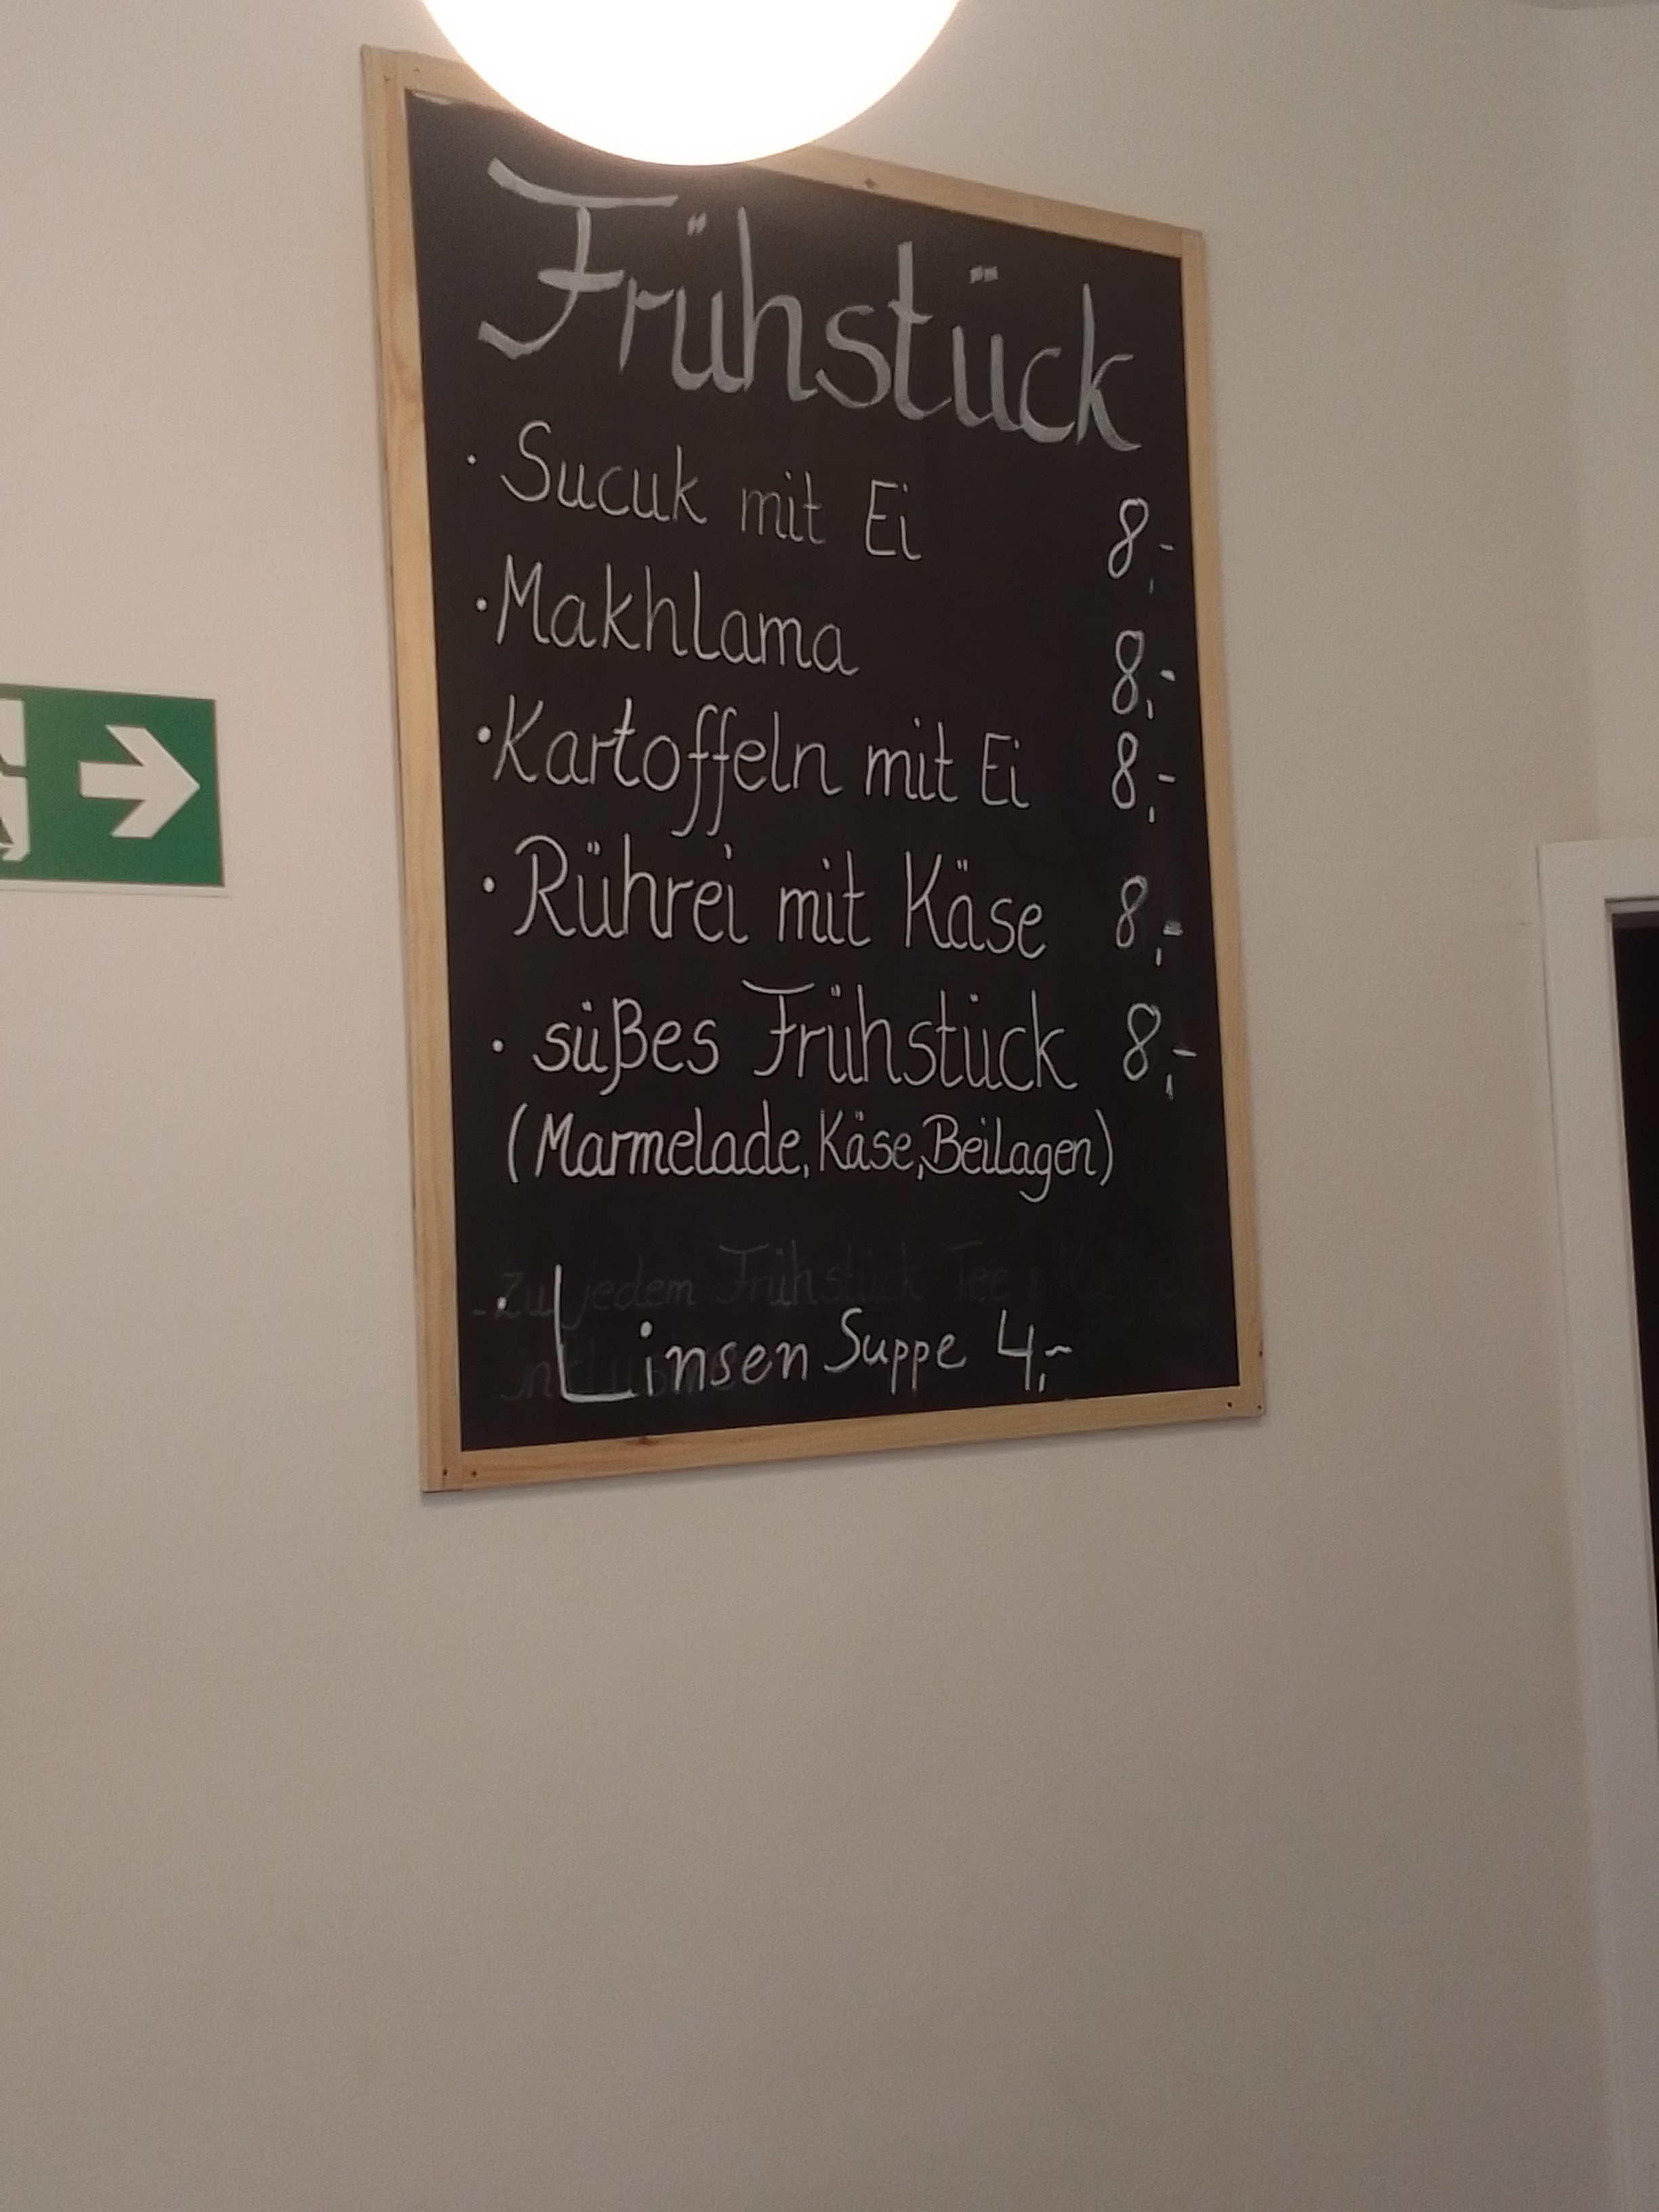 Frühstück
· Sucuk mit Ei 8,-
· Makhlama 8,-
· Kartoffeln mit Ei 8,-
· Rührei mit Käse 8,-
· süßes Frühstück 8,-
(Marmelade, Käse, Beilagen)
- Zu jedem Frühstück Tee
· Linsen Suppe 4,-